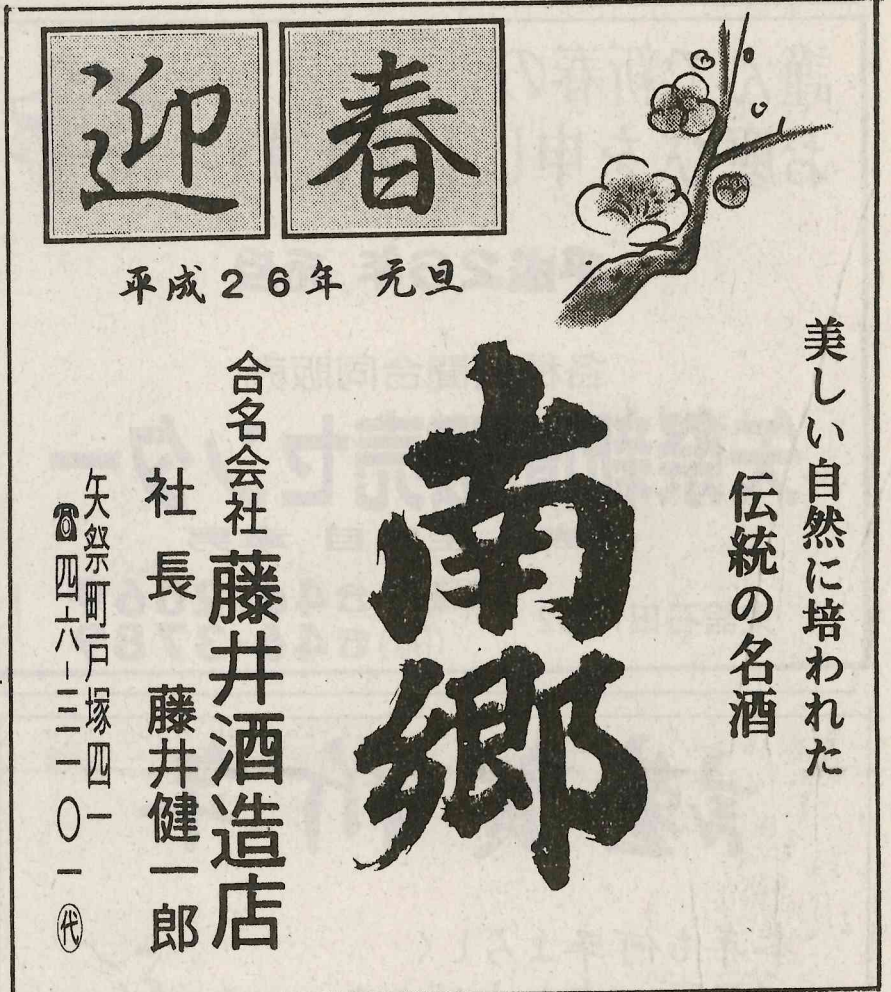 迎春
平成26年 元旦
美しい自然に培われた
伝統の名酒
南郷
合名会社 藤井酒造店
社長 藤井健一郎
矢祭町戸塚四一
☎四六-三一〇一㈹